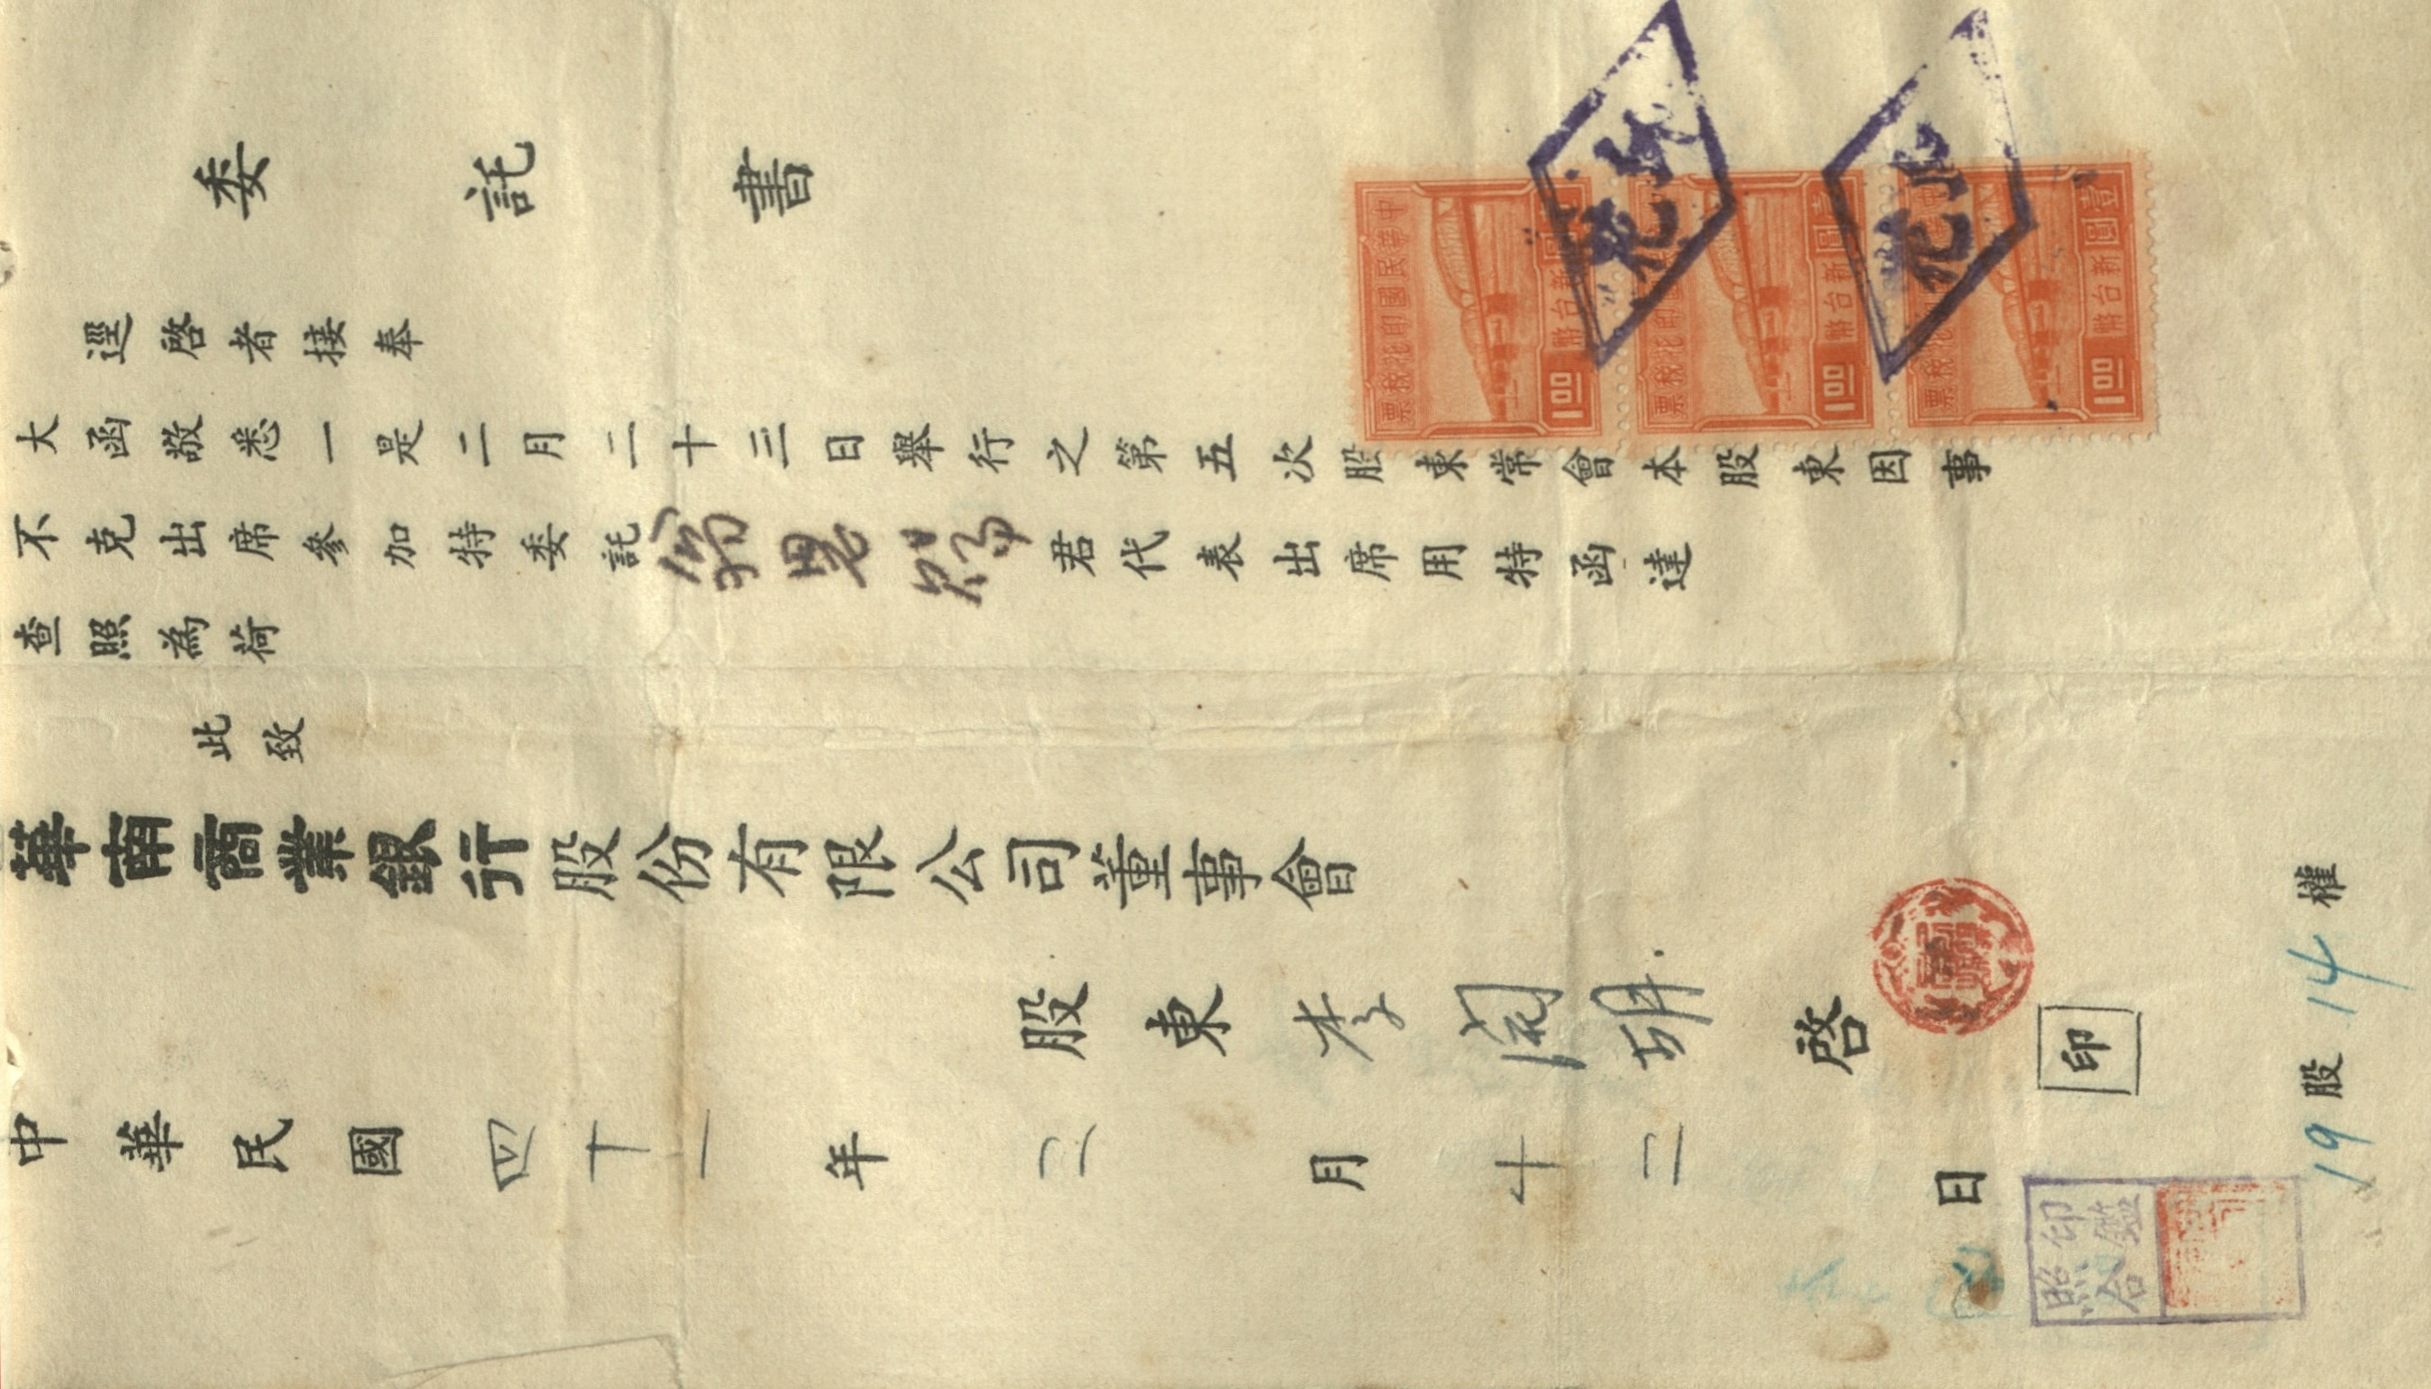 委託書
逕啓者接奉
大函敬悉一是二月二十三日舉行之第五次股東常會本股東因事
不克出席參加特委託翁君代表出席用特函達
查照為荷
此致
華南商業銀行股份有限公司董事會
股東李啓
印
中華民國四十一年二月十二日
19股14權
印鑑
照合
中華民國印花稅票
壹圓
新台幣
1.00
新台幣
1.00
壹圓
新台幣
1.00